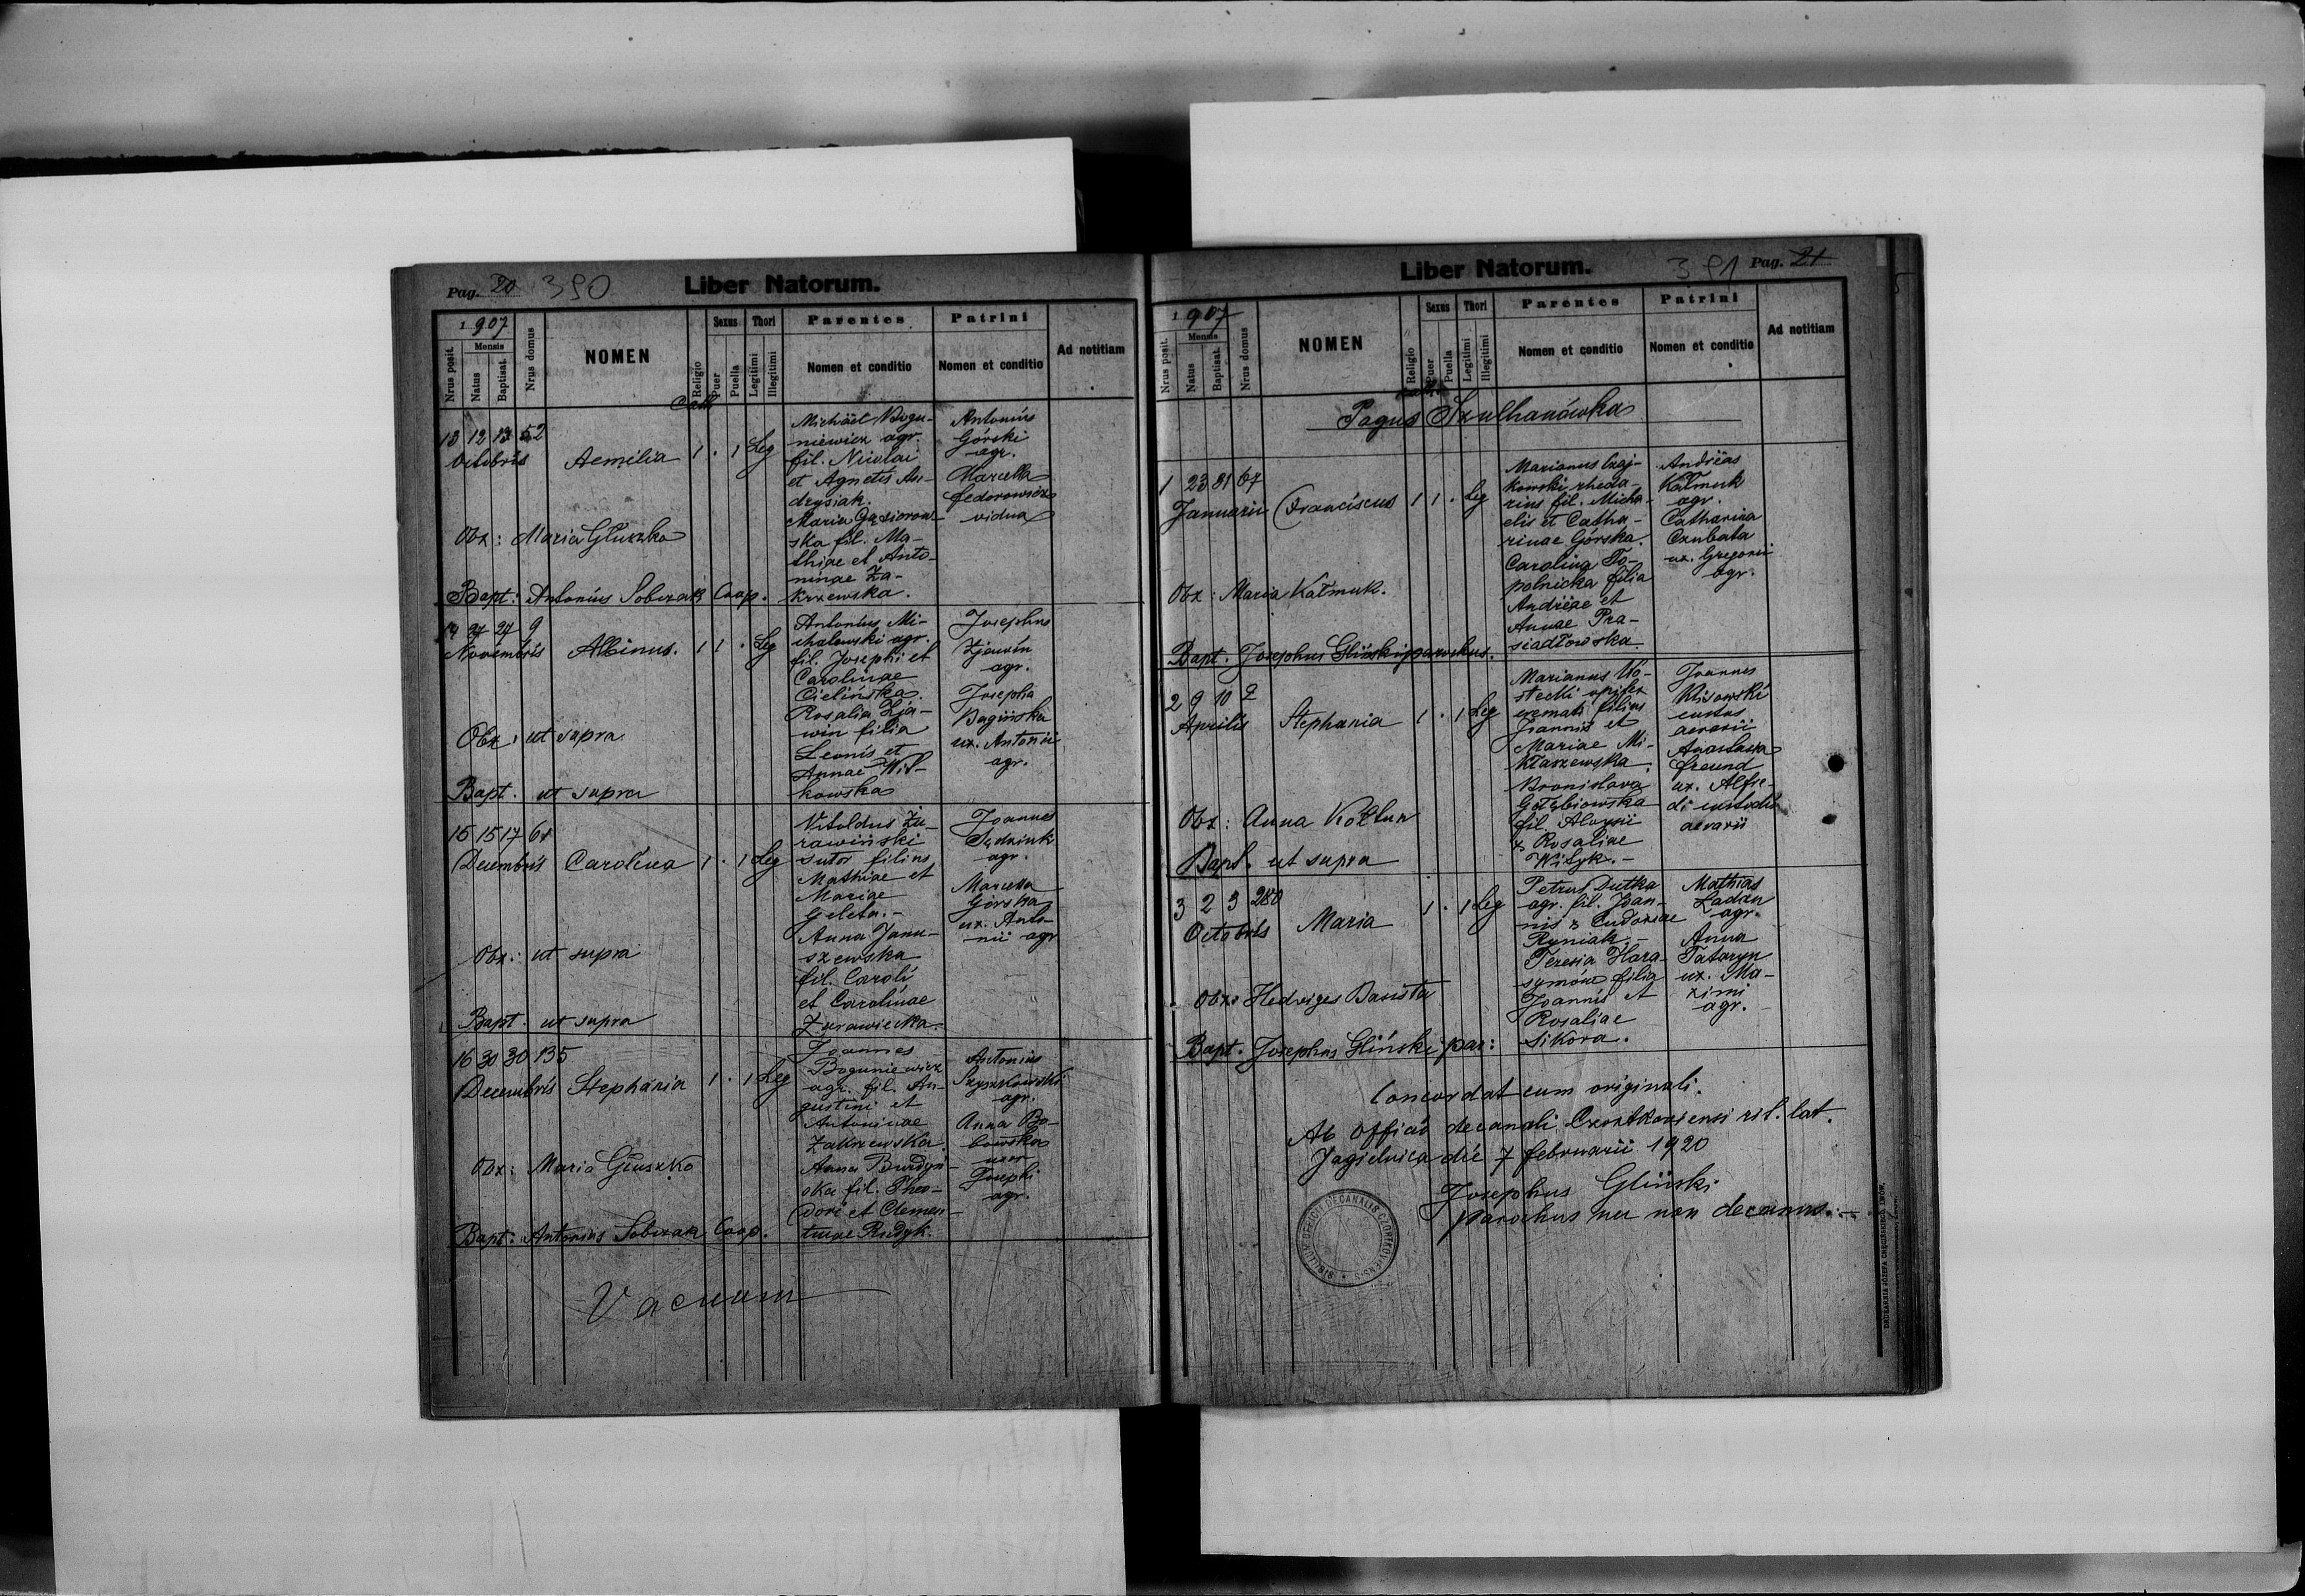 Pag. 20 390
Liber Natorum.
1907
Nrus posit.
Mensis
Natus
Baptisat.
Nrus domus
NOMEN
Religio
Sexus
Puer
Puella
Thori
Legitimi
Illegitimi
Parentes
Nomen et conditio
Patrini
Nomen et conditio
Ad notitiam
Cath
13 12 13 52
Octobris
Aemilia
1 . 1 Leg
Michäel Bogu-
niewicz agr.
fil. Nicolai
et Agnetis An-
drysiak.
Maria Gąsiorow-
ska fil. Ma-
thiae et Anto-
ninae Za-
krzewska.
Antonius
Górski
agr.
Marcella
Fedorowicz
vidua
Obx: Maria Głuszko
Bapt: Antonius Sobczak Coop.
14 27 27 9
Novembris
Albinus.
1 1 . Leg
Antonius Mi-
chalewski agr.
fil. Josephi et
Carolinae
Cielińska.
Rosalia Zja-
win filia
Leonis et
Annae Wil-
kowska
Josephus
Zjawin
agr.
Josepha
Bagińska
ux. Antonii
agr.
Obx: ut supra
Bapt. ut supra
15 15 17 61
Decembris
Carolina
1 . 1 Leg
Vitoldus Żu-
rawiński
sutor filius
Mathiae et
Mariae
Geleta.-
Anna Janu-
szewska
fil. Caroli
et Carolinae
Żurawiecka.
Joannes
agr.
Marcella
Górska
ux. Anto-
nii agr
Obx: ut supra
Bapt. ut supra
16 30 30 135
Decembris
Stephania
1 . 1 Leg
Joannes
Boguniewicz
agr. fil. Au-
gustini et
Antoninae
Zakrzewska.
Anna Burdyn-
ska fil. Theo-
dori et Clemen-
tinae Rudyk.
Antonius
Szyszkowski
agr.
Anna Bo-
bowska
uxor
Josephi
agr.
Obx: Maria Głuszko
Bapt: Antonius Sobczak Coop.
Vacuum
Liber Natorum.
391 Pag. 21
1907
Nrus posit.
Mensis
Natus
Baptisat.
Nrus domus
NOMEN
Religio
Sexus
Puer
Puella
Thori
Legitimi
Illegitimi
Parentes
Nomen et conditio
Patrini
Nomen et conditio
Ad notitiam
Pagus Szulhanówka
1 23 31 67
Januarii
Franciscus
1 1 . Leg
Marianus Czaj-
kowski rheda-
rius fil. Micha-
elis et Catha-
rinae Górska.
Carolina To-
polnicka filia
Andreae et
Annae Pra-
siadłowska
Andreas
Kałmuk
agr.
Catharina
Czubata
ux. Gregorii
agr.
Obx: Maria Kałmuk.
Bapt. Josephus Gliński parochus.
2 9 10 2
Aprilis
Stephania
1 . 1 Leg
Marianus Ko-
stecki opifex
cremati filius
Joannis et
Mariae Mi-
kłaszewska.
Bronislava
Gołębiowska
fil. Aloysii
& Rosaliae
Wityk.-
Joannes
custos
aerarii
Anastasia
Freund
ux. Alfre-
di custodis
aerarii
Obx: Anna Kołtun
Bapt. ut supra
3 2 3 280
Octobris
Maria
1 . 1 Leg
Petrus Dutka
agr. fil. Joan-
nis & Eudoxiae
Ryniak.-
Teresia Hara-
symów filia
Joannis et
Rosaliae
Sikora.
Mathias
Ładan
agr.
Anna
Tataryn
ux. Ma-
ximi
agr.
Obx: Hedviges Basista
Bapt. Josephus Gliński par:
Concordat cum originali.
Ab officio decanali Czortkoviensi rit. lat.
Jagielnica die 7 februarii 1920
Josephus Gliński
parochus nec non decanus.-
SIGILLUM OFFICII DECANALIS CZORTKOVIENSIS